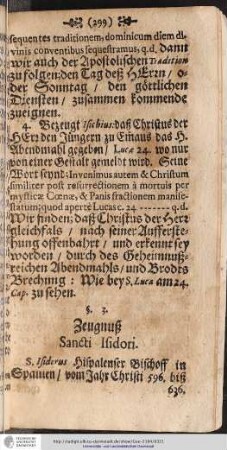 (299)
sequentes traditionem, dominicum diem di-
vinis conventibus sequestramus, q.d. dann
wir auch der Apostolischen Tradition
zu folgen: den Tag deß HErrn / o-
der Sonntag / den göttlichen
Diensten / zusammen kommende
zueignen.
4. Bezeugt Isichius: daß Christus der
HErr den Jüngern zu Emaus das H.
Abendmahl gegeben / Lucæ 24. wo nur
von einer Gestalt gemeldt wird. Seine
Wort seynd: Invenimus autem & Christum
similiter post resurrectionem à mortuis per
mysticæ Cœnæ, & Panis fractionem manife-
statum; quod apertè Lucas c. 24 ------- q.d.
Wir finden: daß Christus der Herr
gleichfals / nach seiner Aufferste-
hung offenbahrt / und erkennt sey
worden / durch des Geheimnuß-
reichen Abendmahls / und Brodts
Brechung: Wie bey S. Luca am 24.
Cap. zu sehen.
§. 3.
Zeugnuß
Sancti Isidori.
S. Isiderus Hispalenser Bischoff in
Spanien / vom Jahr Christi 596. biß
636.